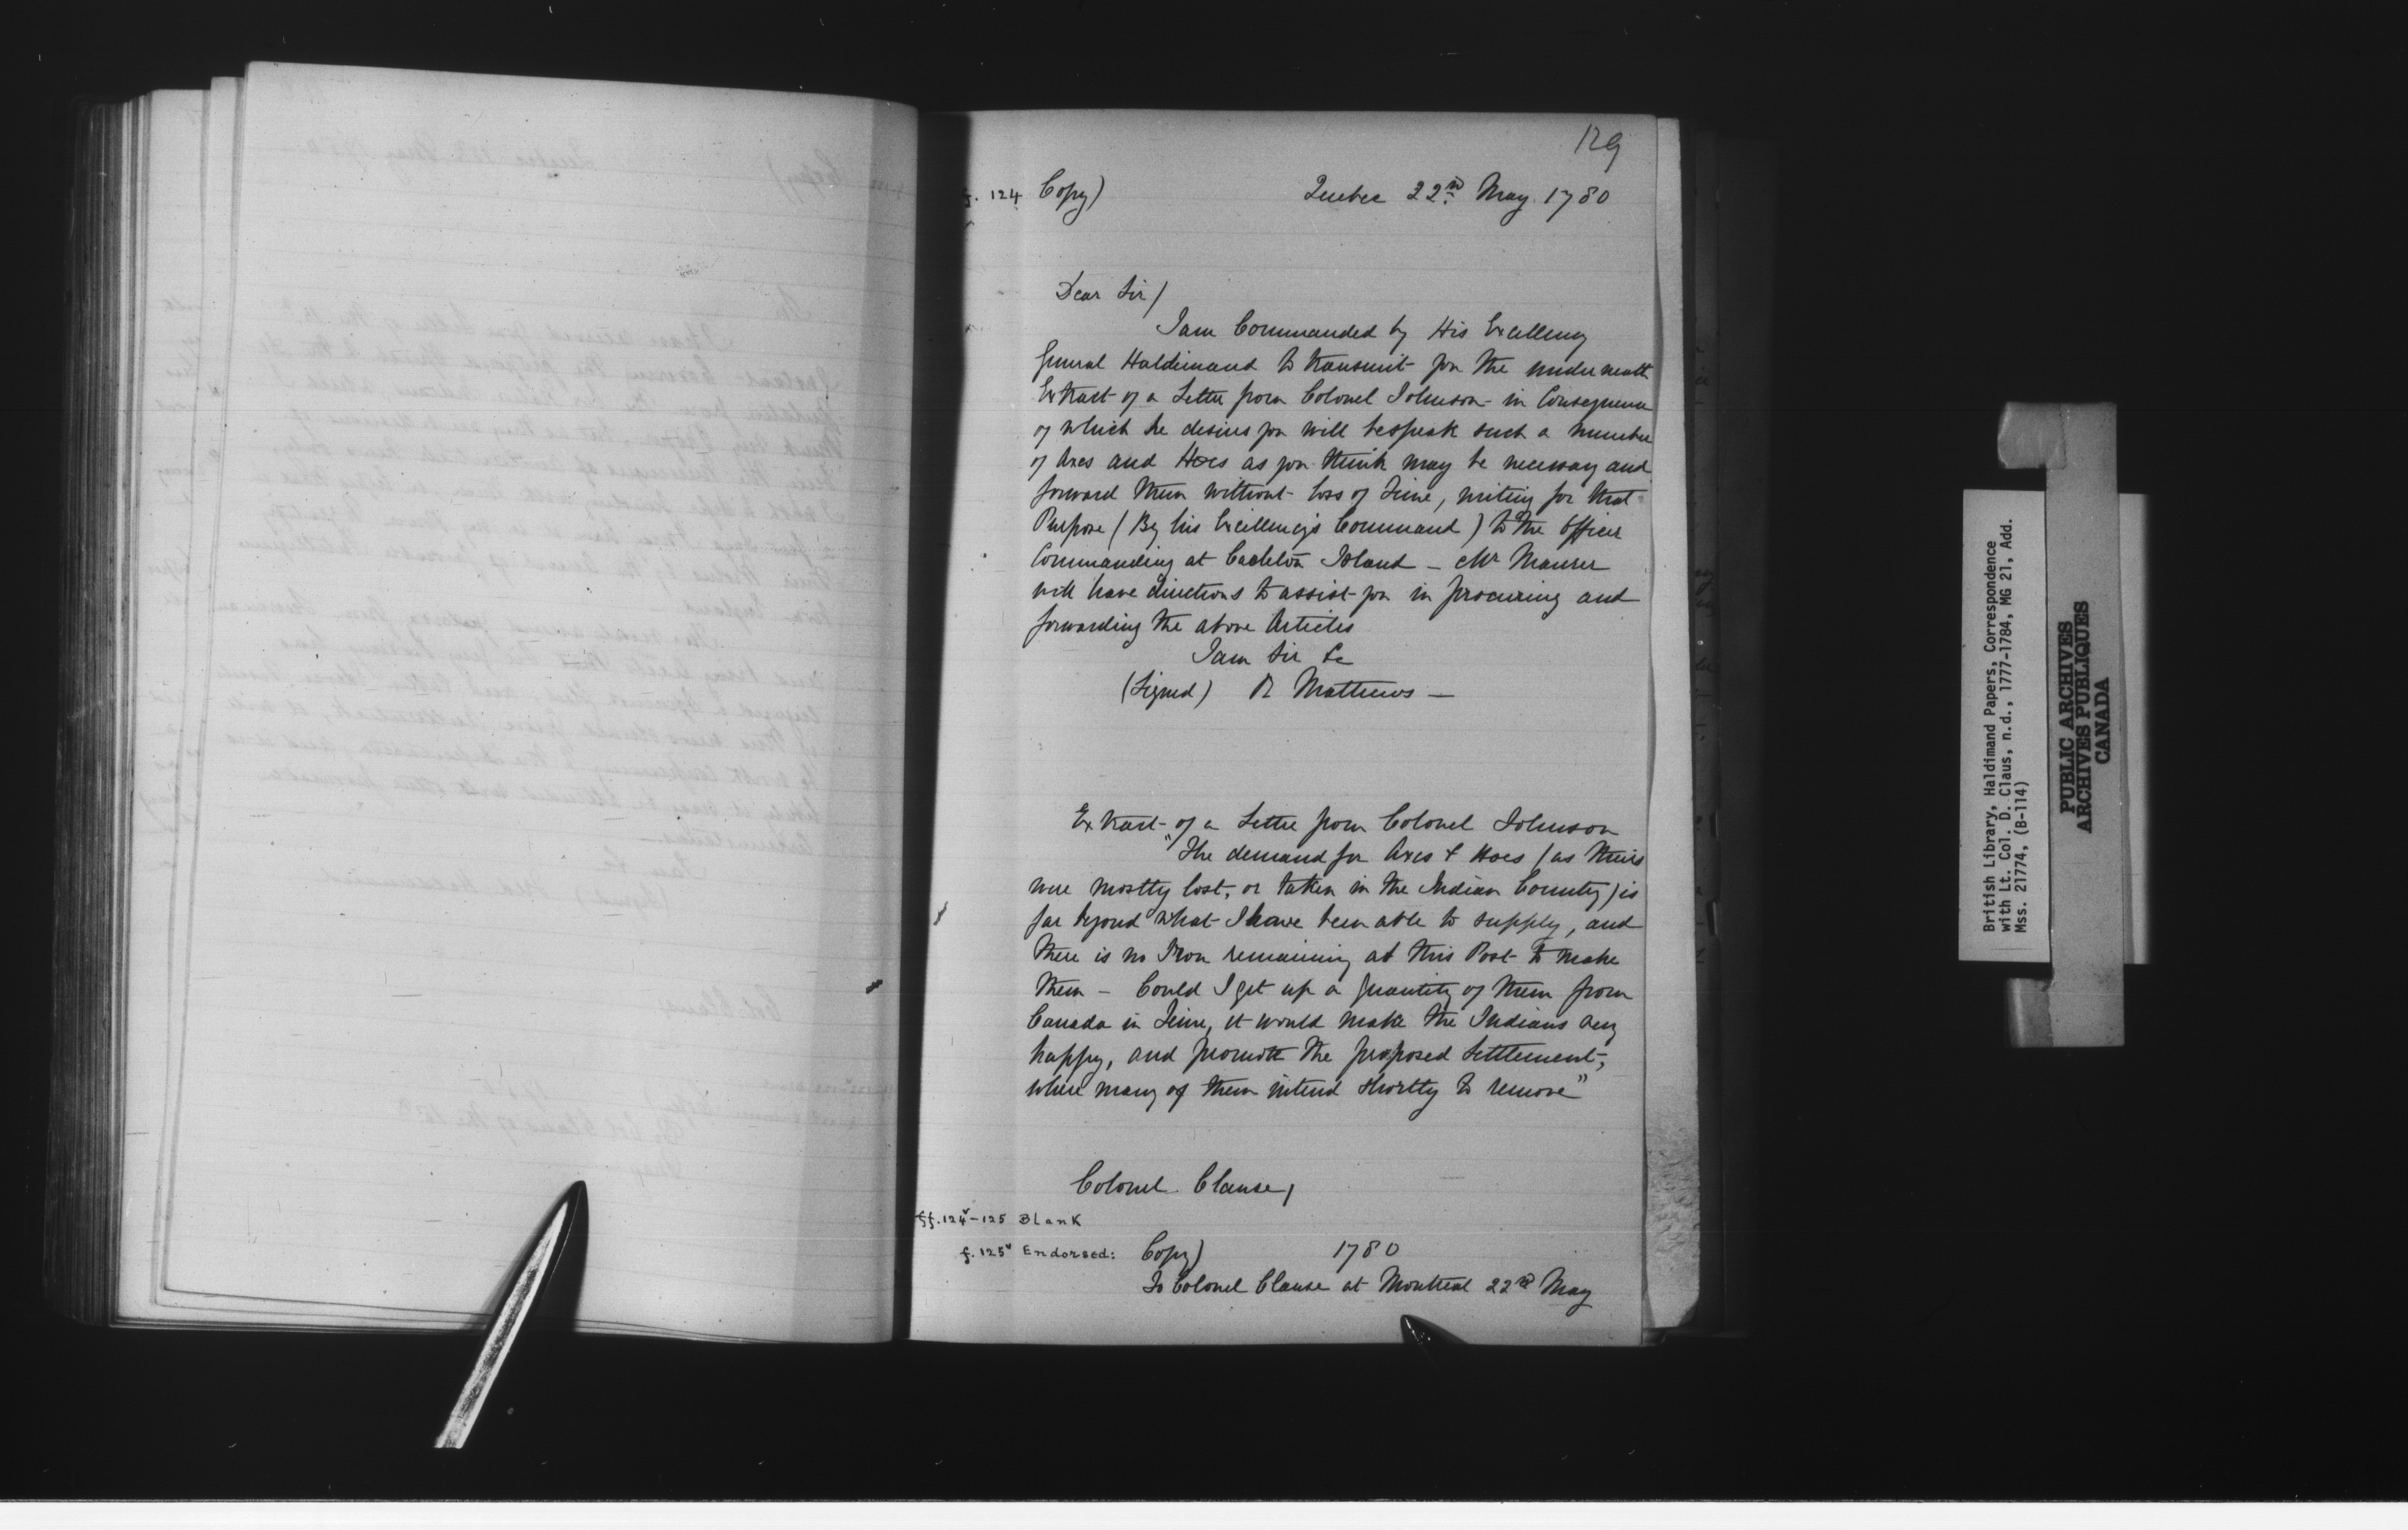 129
f. 124 Copy) Quebec 22nd May 1780
Dear Sir/
I am Commanded by His Excellency
General Haldimand to transmit you the underneath
Extract of a Letter from Colonel Johnson - in Consequence
of which he desires you will bespeak such a number
of Axes and Hoes as you think may be necessary and
forward them without loss of Time, writing for that
Purpose (By his Excellency's Command) to the Officer
Commanding at Carleton Island - Mr Maurer
will have directions to assist you in procuring and
forwarding the above Articles
I am Sir &c
(Signed) R Mathews -
Extract of a Letter from Colonel Johnson
"The demand for Axes & Hoes (as theirs
were mostly lost, or taken in the Indian Country) is
far beyond what I have been able to supply, and
there is no Iron remaining at this Post to make
them - Could I get up a quantity of them from
Canada in Time, it would make the Indians very
happy, and promote the proposed Settlement,
where many of them intend shortly to remove"
Colonel Clause,
ff. 124v-125 Blank
f. 125v Endorsed: Copy) 1780
To Colonel Clause at Montreal 22nd May
British Library, Haldimand Papers, Correspondence
with Lt. Col. D. Claus, n.d., 1777-1784, MG 21, Add.
Mss. 21774, (B-114)
PUBLIC ARCHIVES
ARCHIVES PUBLIQUES
CANADA